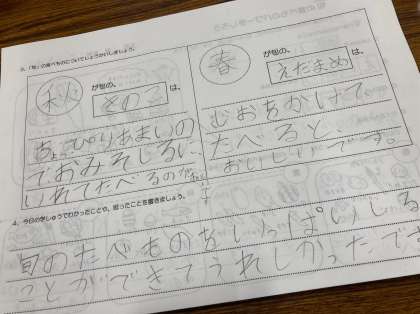 3.「旬」の食べものについてしょうかいしましょう。
秋 が旬の、 きのこ は、
ちょっぴりあまいの
でおみそしるに
いれてたべるのが
春 が旬の、 えだまめ は、
しおをかけて
たべると、
おいしいです。
4. 今日の学しゅうでわかったことや、思ったことを書きましょう。
旬のたべものをいっぱいしる
ことができてうれしかったです